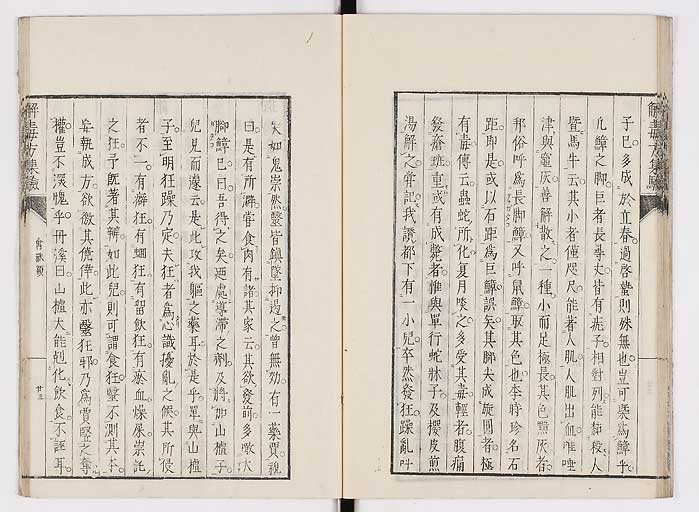 于巳多成於立春過啓蟄則殊無也豈可槩爲鱆乎
凡鱆之脚巨者長尋丈皆有疣子相對列能緣殺人
曁馬牛云其小者僅咫尺能著人肌人肌出血唯唾
津與竈灰善解散之一種小而足極長其色灰者
邦俗呼爲長脚鱆又呼鼠鱆取其色也李時珍名石
距即是或以石距爲巨鱆誤矣其脚夫成旋圓者極
有毒傳云蟲蛇所化夏月啖之多受其毒輕者腹痛
發瘡斑重或有成斃者惟與單行蛇牀子及櫻皮煎
湯解之嘗記我讚都下有一小兒卒然發狂躁亂叫
大如鬼祟然毉皆鎮墜抑過之曽無効有一藥賈視
曰是有所癖嘗食肉有諸其家云其欲發前多噉大
脚鱆巳曰吾得之矣廼處導滯之劑及將如山樝子
兒見而遽云是此攻我軀之藥耳於是乎單與山樝
子至明狂躁乃定夫狂者爲心識擾亂之候其所使
者不一有癖狂有蛔狂有留飮狂有瘀血燥屎祟託
之狂予既著其辨如此兒則可謂食狂毉不測其本
毎執成方欲徼其僥倖此亦毉狂邪乃爲賈竪之奪
權豈不深愧乎冊溪曰山樝大能剋化飮食不誣耳
解毒方集驗
廿三
解毒方集驗